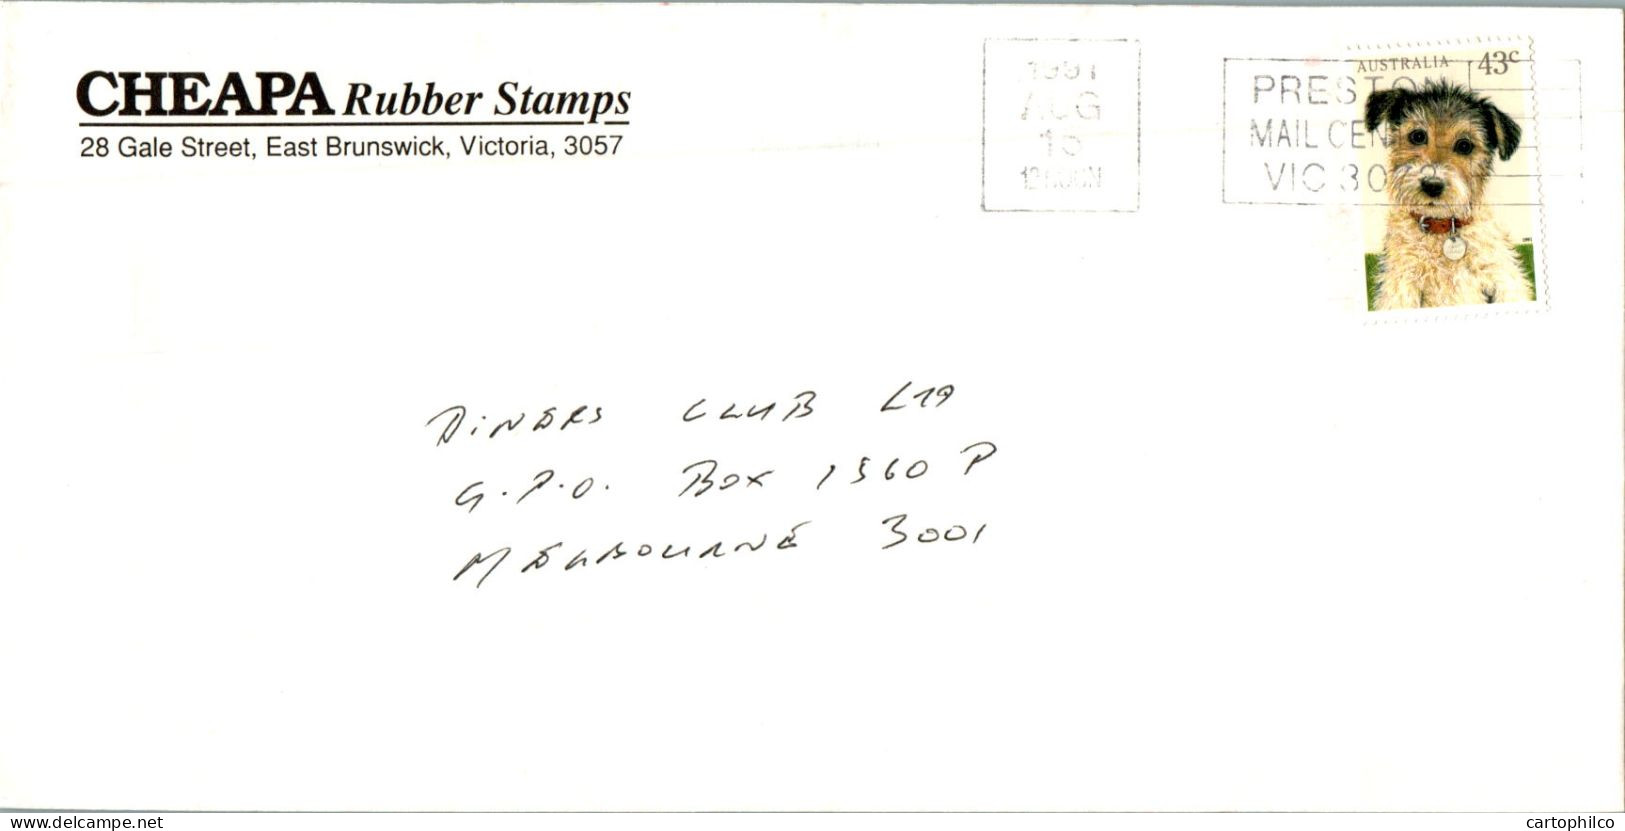 CHEAPA Rubber Stamps
28 Gale Street, East Brunswick, Victoria, 3057
1991
AUG
15
12 NOON
PRESTON
MAIL CEN
VIC 3072
AUSTRALIA 43c
DINERS CLUB LTD
G.P.O. BOX 1560 P
MELBOURNE 3001
delcampe.net
cartophilco